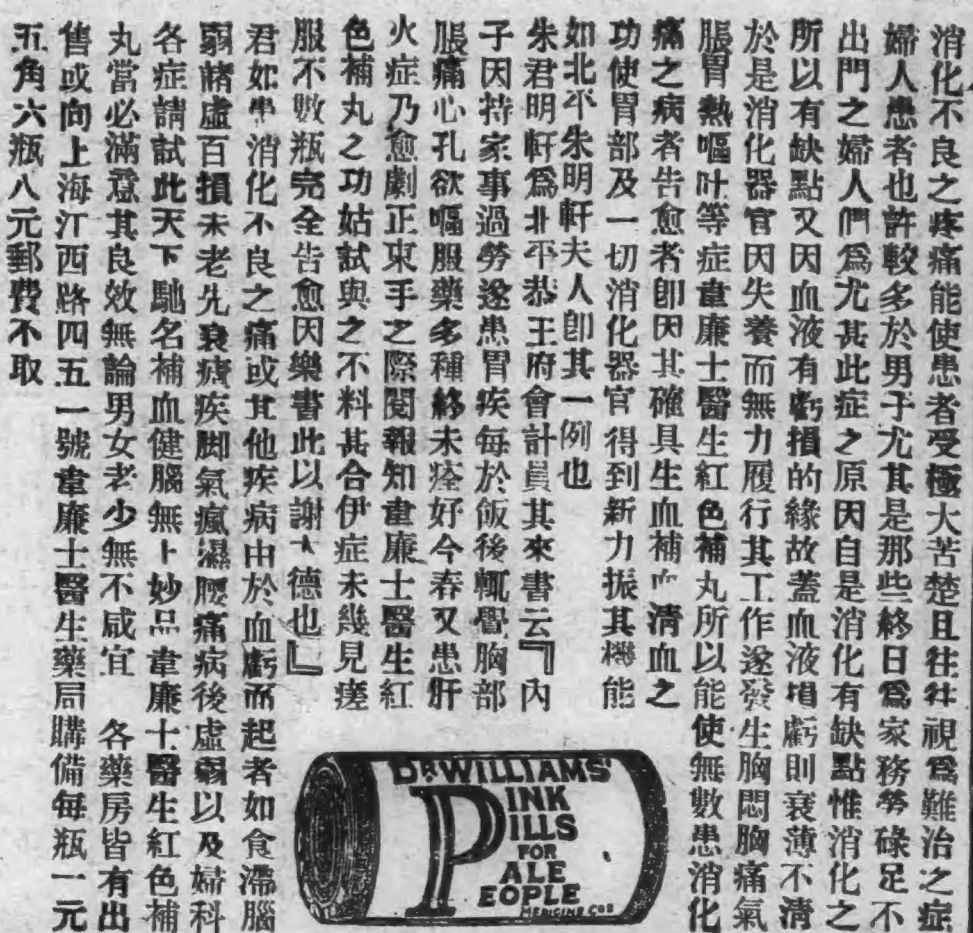 消化不良之疼痛能使患者受極大苦楚且往往視爲難治之症
婦人患者也許較多於男子尤其是那些終日爲家務勞碌足不
出門之婦人們爲尤甚此症之原因自是消化有缺點惟消化之
所以有缺點又因血液有虧損的緣故蓋血液損虧則衰薄不清
於是消化器官因失養而無力履行其工作遂發生胸悶胸痛氣
脹胃熱嘔吐等症韋廉士醫生紅色補丸所以能使無數患消化
痛之病者告愈者卽因其確具生血補血清血之
功使胃部及一切消化器官得到新力振其機能
如北平朱明軒夫人卽其一例也
朱君明軒爲北平恭王府會計員其來書云『內
子因持家事過勞遂患胃疾每於飯後輒覺胸部
脹痛心孔欲嘔服藥多種終未痊好今春又患肝
火症乃愈劇正束手之際閱報知韋廉士醫生紅
色補丸之功姑試與之不料甚合伊症未幾見瘥
服不數瓶完全告愈因樂書此以謝大德也』
君如患消化不良之痛或其他疾病由於血虧而起者如食滯腦
弱諸虛百損未老先衰瘡疾脚氣瘋濕腰痛病後虛弱以及婦科
各症請試此天下馳名補血健腦無上妙品韋廉士醫生紅色補
丸當必滿意其良效無論男女老少無不咸宜 各藥房皆有出
售或向上海江西路四五一號韋廉士醫生藥局購備每瓶一元
五角六瓶八元郵費不取
DR WILLIAMS'
PINK
PILLS
FOR
PALE
PEOPLE
MEDICINE CO